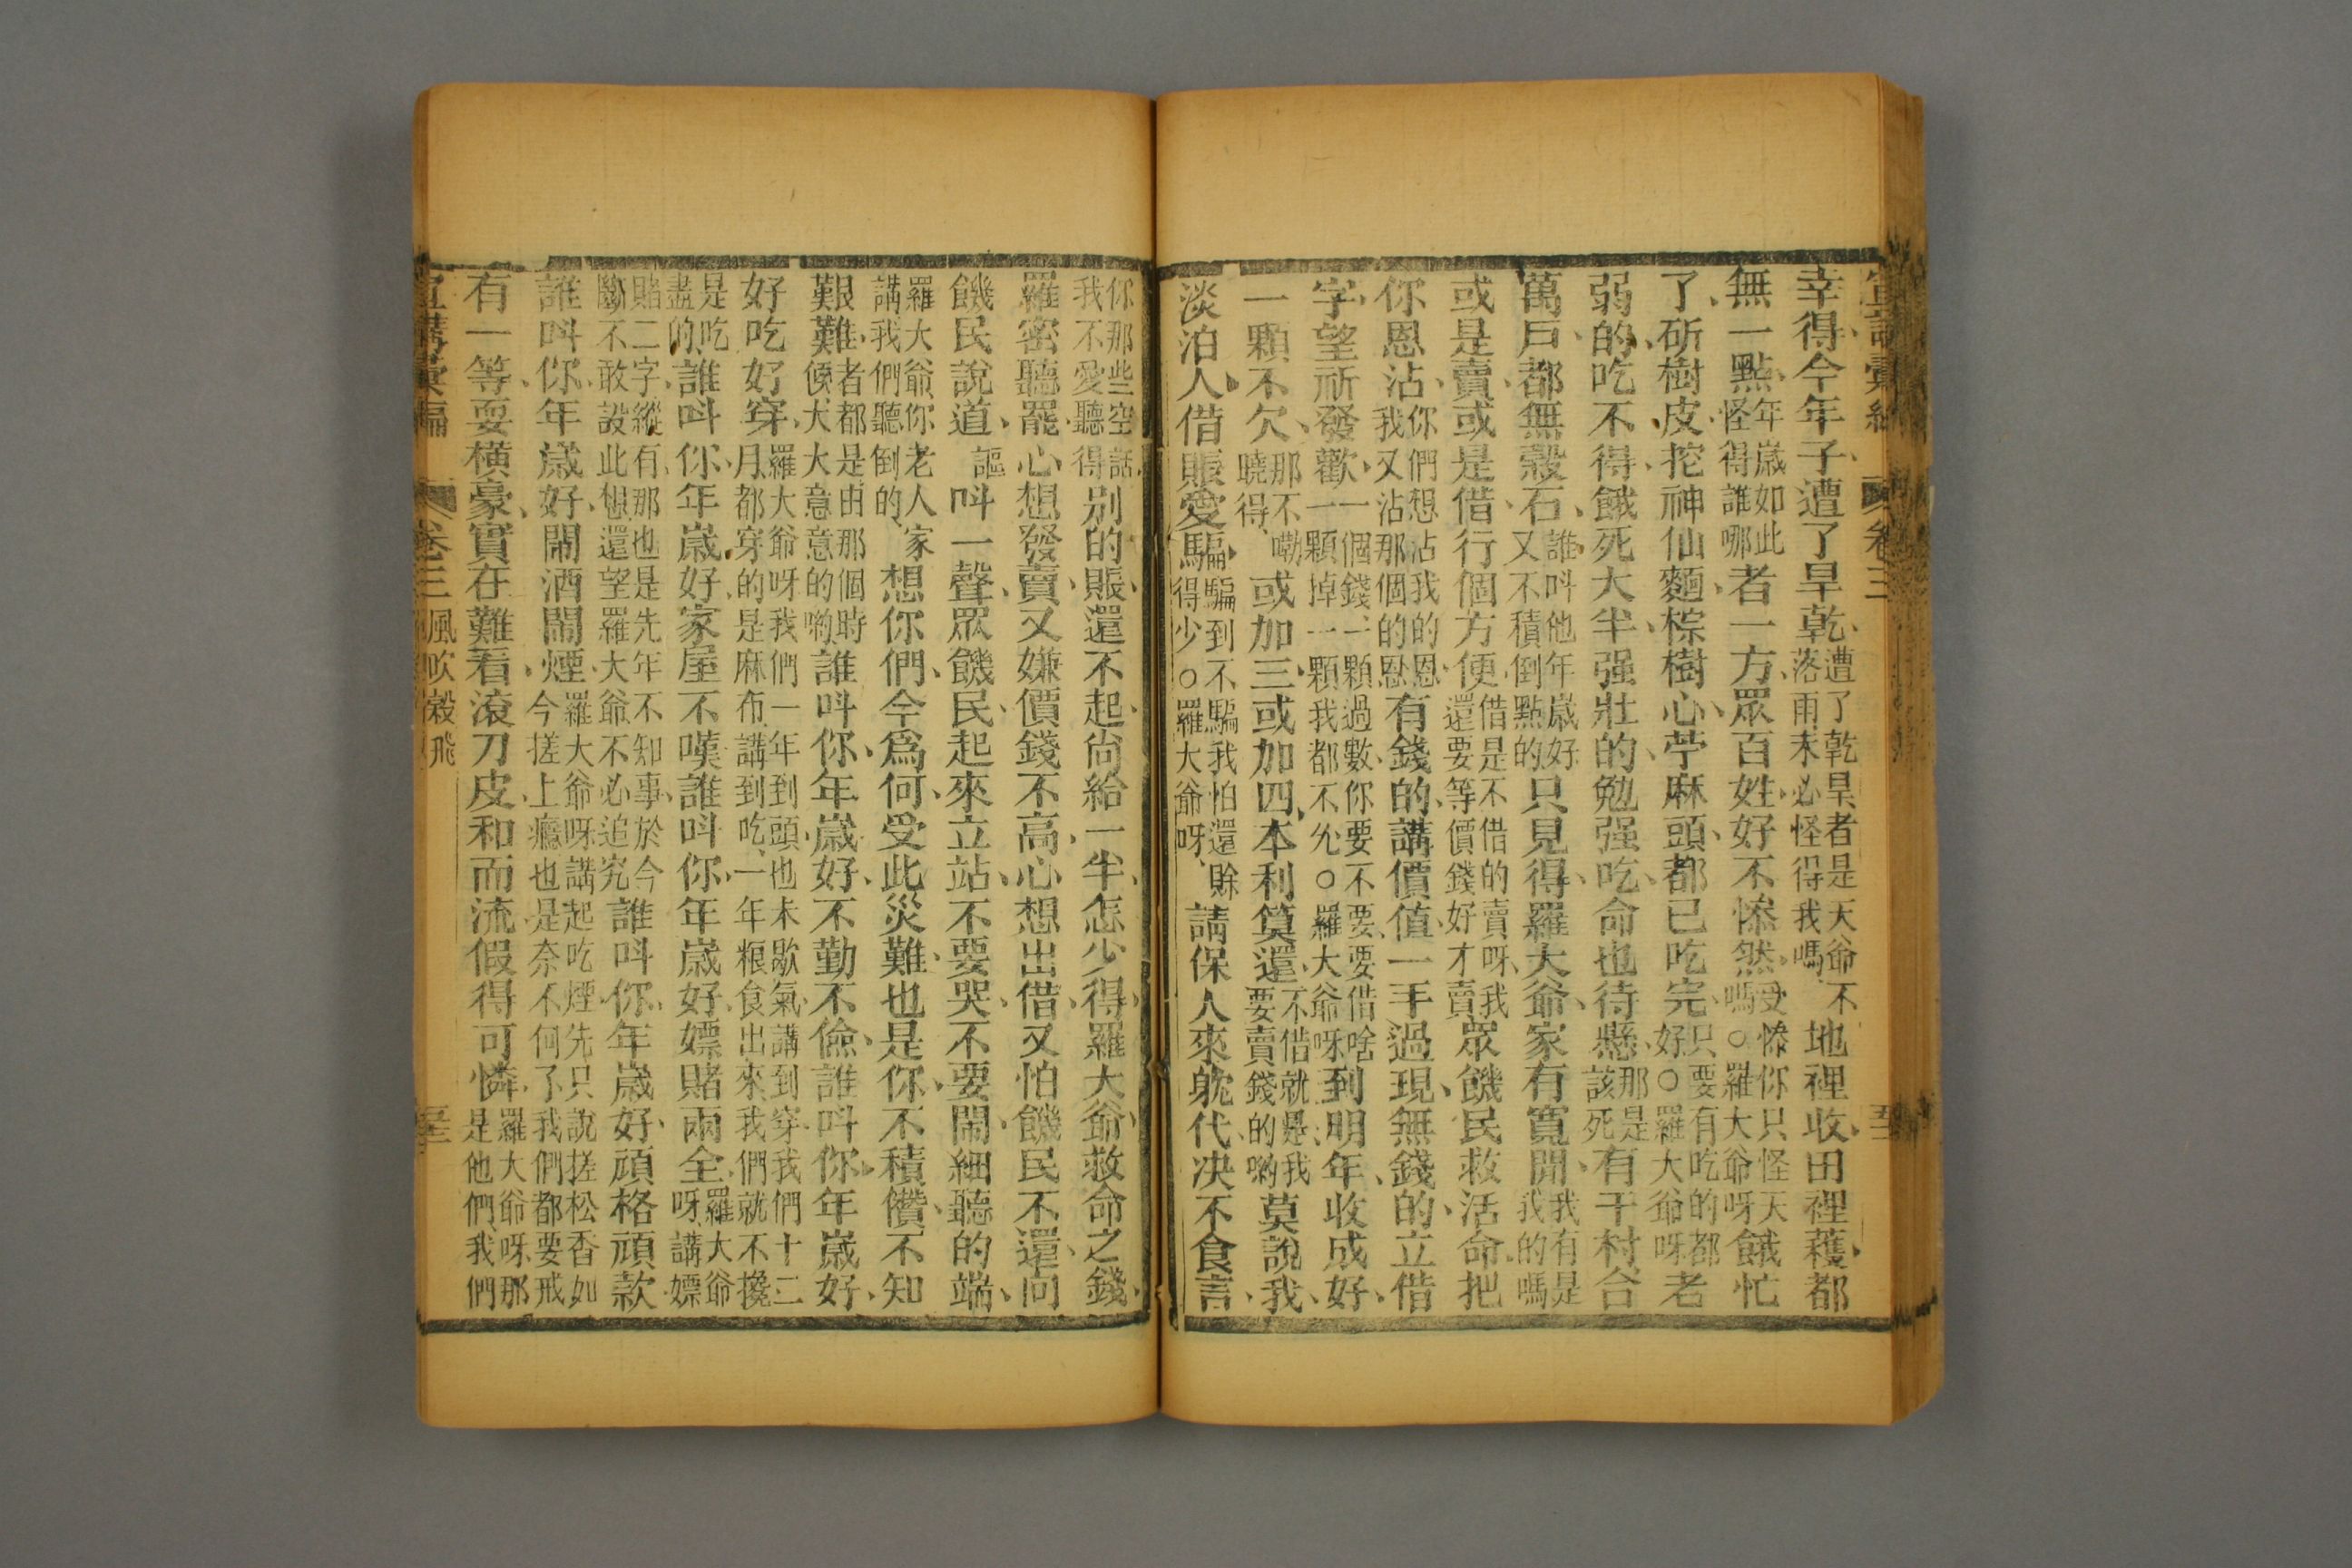 宣講彙編 卷三
幸得今年子遭了旱乾遭了乾旱者是天爺不落雨未必怪得我嗎地裡收田裡穫都
無一點年歲如此怪得誰哪者一方眾百姓好不慘然受慘你只怪天嗎○羅大爺呀餓忙
了斫樹皮挖神仙麵棕樹心苧麻頭都已吃完只要有吃的都好○羅大爺呀老
弱的吃不得餓死大半强壯的勉强吃命也待懸那是該死有千村合
萬戶都無穀石誰叫他年歲好又不積倒點的只見得羅大爺家有寬閒我有是我的嗎
或是賣或是借行個方便借是不借的賣呀我還要等價錢好才賣眾饑民救活命把
你恩沾你們想沾我的恩我又沾那個的恩有錢的講價值一手過現無錢的立借
字望祈發歡一個錢一顆過數你要不要要借啥一顆掉一顆我都不允○羅大爺呀到明年收成好
一顆不欠那不嘞曉得或加三或加四本利算還不借就是我要賣錢的喲莫說我
淡泊人借賬愛騙騙到不騙我怕還賒得少○羅大爺呀請保人來躭代决不食言
你那些空話我不愛聽得別的賬還不起尚給一半怎少得羅大爺救命之錢
羅密聽罷心想發賣又嫌價錢不高心想出借又怕饑民不還向
饑民說道謳叫一聲眾饑民起來立站不要哭不要鬧細聽的端
羅大爺你老人家講我們聽倒的想你們今爲何受此災難也是你不積儹不知
艱難者都是由那個時候大大意意的喲誰叫你年歲好不勤不儉誰叫你年歲好
好吃好穿羅大爺呀我們一年到頭也未歇氣講到穿我們十二月都穿的是麻布講到吃一年粮食出來我們就不攙
是吃盡的誰叫你年歲好家屋不嘆誰叫你年歲好嫖賭兩全羅大爺呀講嫖
賭二字縱有那也是先年不知事於今斷不敢設此想還望羅大爺不必追究誰叫你年歲好頑格頑款
誰叫你年歲好鬧酒鬧煙羅大爺呀講起吃煙先只說搓松香如今搓上癮也是奈不何了我們都要戒
有一等耍橫豪實在難看滾刀皮和而流假得可憐羅大爺呀那是他們我們
宣講彙編 卷三 風吹穀飛 五三